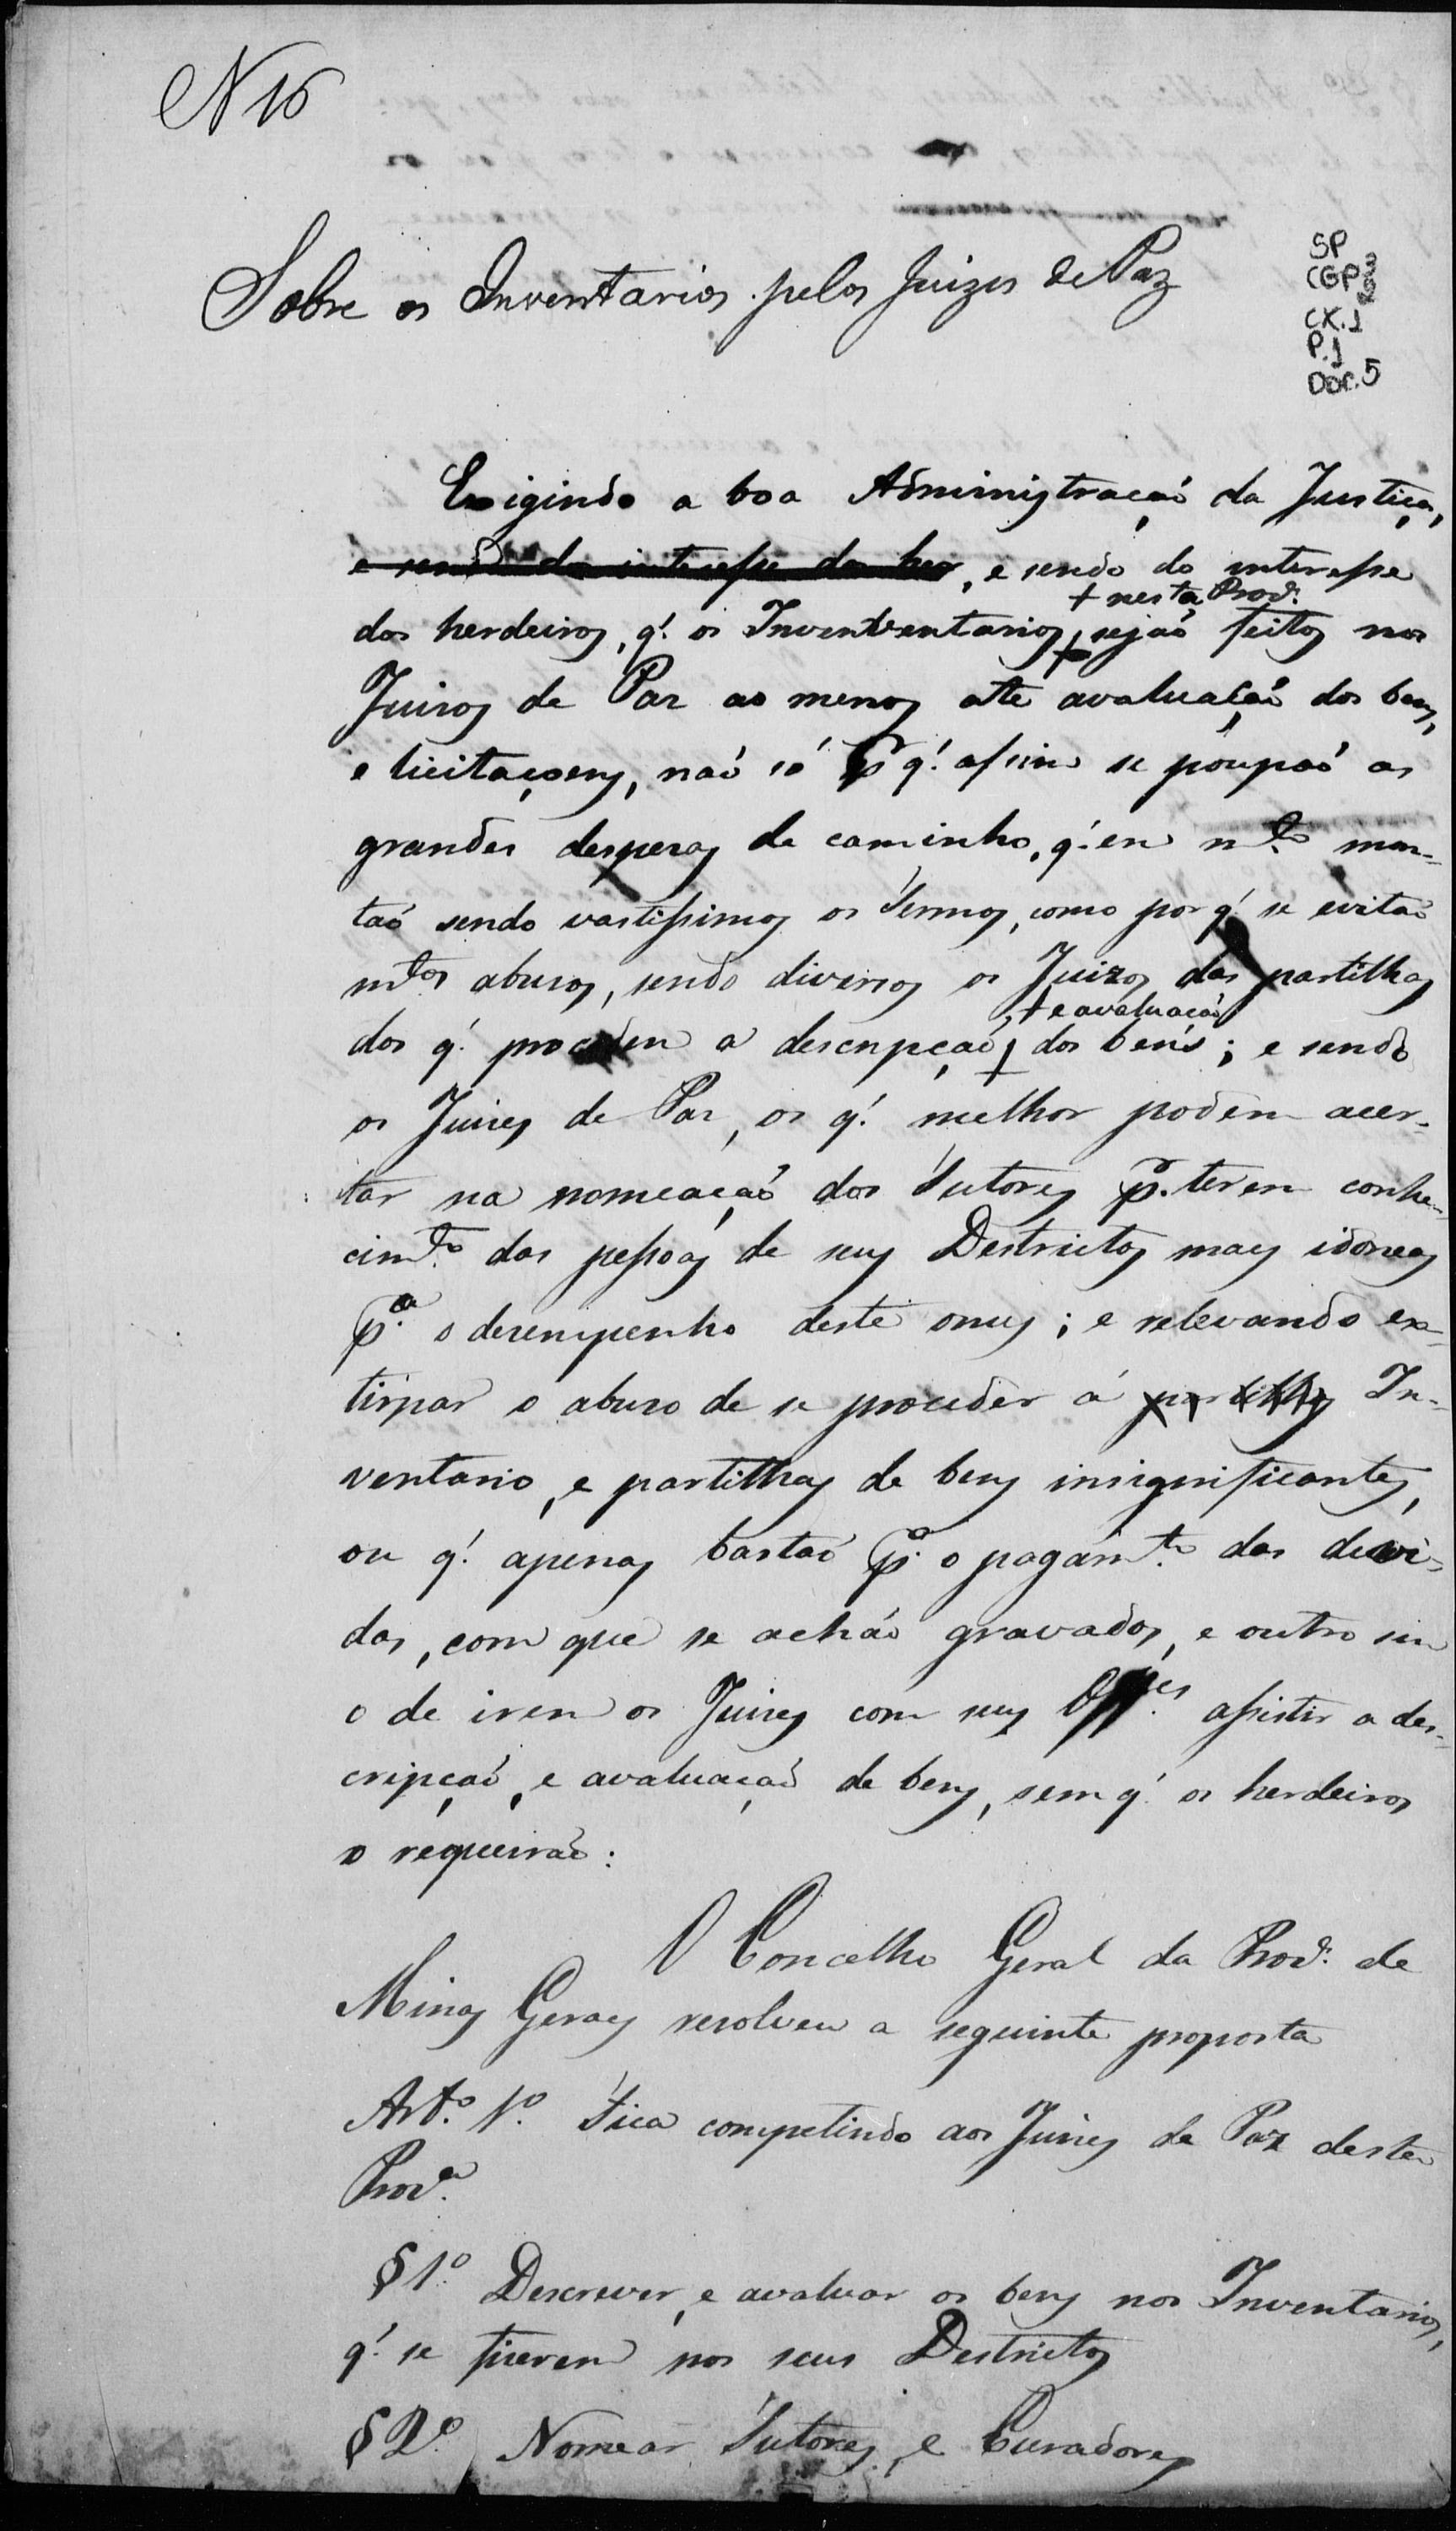 N 16
Sobre os Inventarios pelos Juizes de Paz
SP
CGP 3
CX. 1
P. 1
DOC. 5
Exigindo a boa Administraçaõ da Justiça,
e sendo do interesse dos her, e sendo do interesse
+ nesta Prov.ª
dos herdeiros, q' os Inventventarios + sejaõ feitos nos
Juizos de Paz ao menos ate avaluaçaõ dos bens,
e licitaçoens, naõ só p.r q' assim se poupaõ as
grandes despezas de caminho, q' em m.to mon-
taõ sendo vastissimos os Termos, como por q' se evitaõ
m.tos abusos, sendo diversos os Juizos das partilhas
, + e avaluaçaõ
dos q' procedem a descripçaõ + dos bens; e sendo
os Juizes de Paz, os q' melhor podem acer-
tar na nomeaçaõ dos Tutores p.r terem conhe-
cim.to das pessoas de seus Destrictos mais idoneas
p.ª o desempenho deste onus; e relevando ex-
tirpar o abuso de se proceder á partilhas In-
ventario, e partilhas de bens insignificantes,
ou q' apenas bastaõ p.ª o pagam.to das divi-
das, com que se achaõ gravados, e outro sim
o de irem os Juizes com seus Off.es assistir a des-
cripçaõ, e avaluaçaõ de bens, sem q' os herdeiros
o requeiraõ:
O Concelho Geral da Prov.ª de
Minas Geraes resolveu a seguinte proposta
Art.º 1.º Fica competindo aos Juizes de Paz desta
Prov.ª
§ 1.º Descrever, e avaluar os bens nos Inventarios,
q' se fizerem nos seus Destrictos
§ 2.º Nomear Tutores, e Curadores